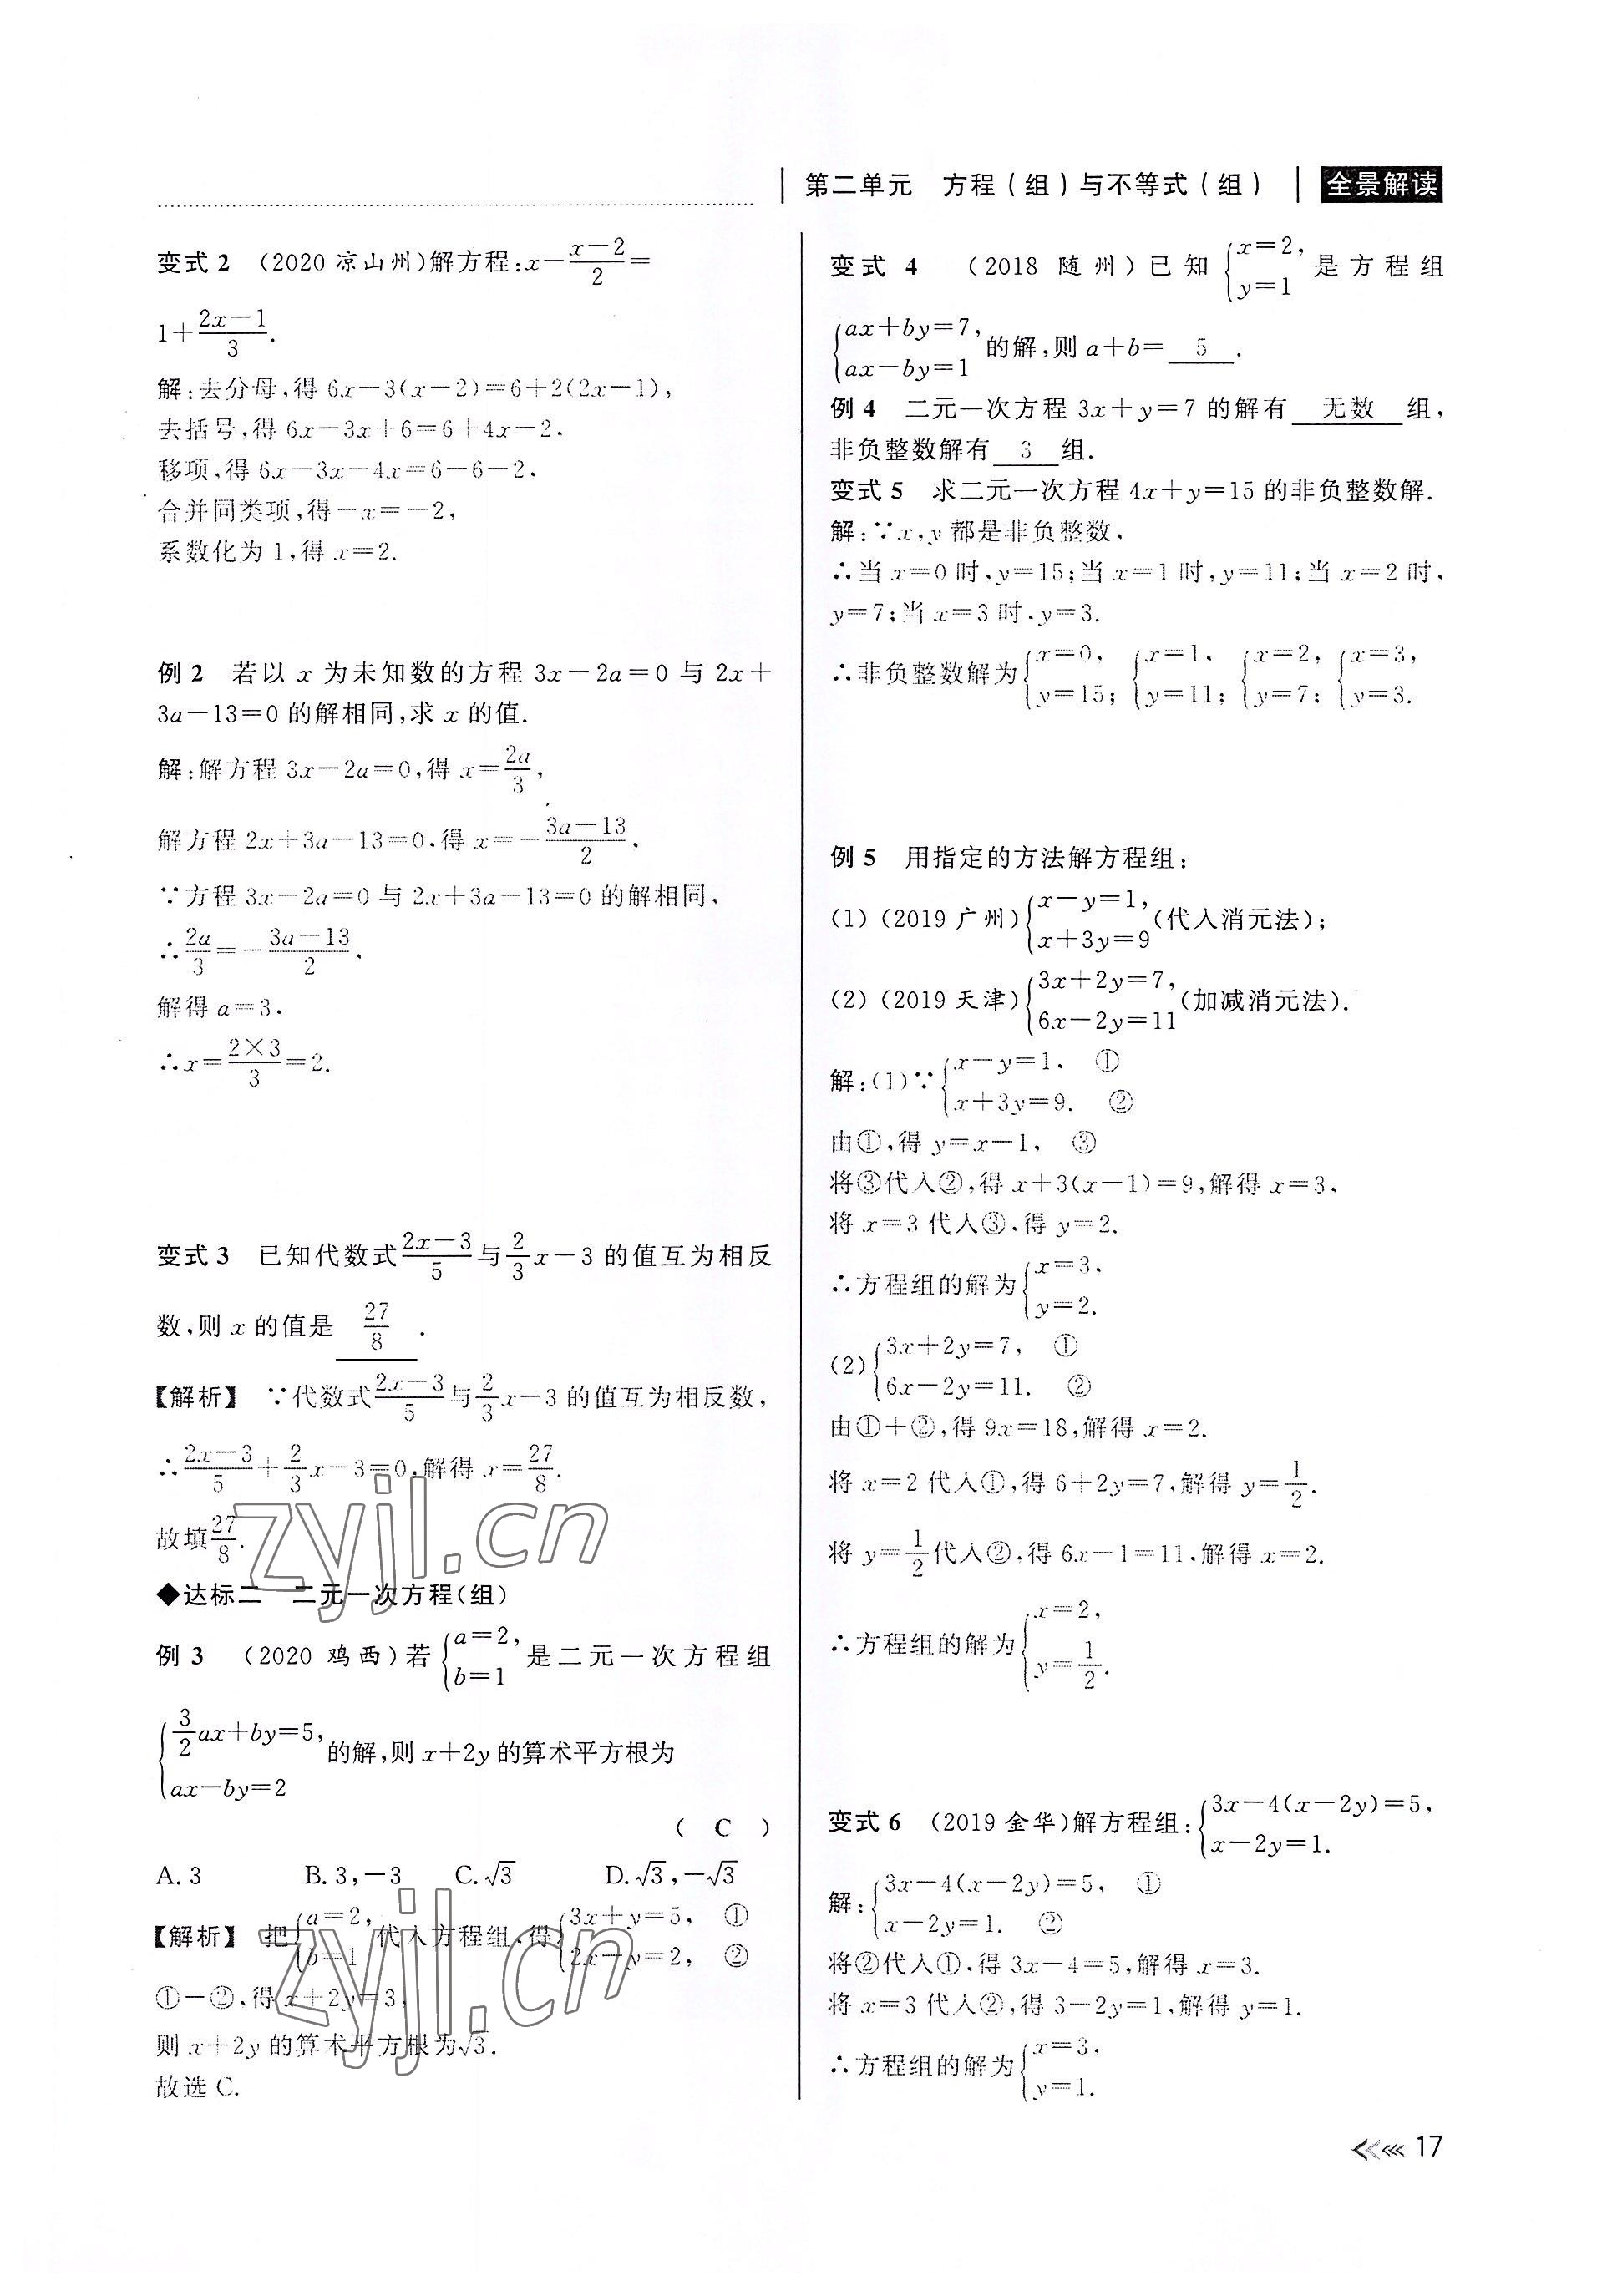 第二单元 方程(组)与不等式(组) 全景解读
变式 2 (2020 凉山州)解方程:x-\frac{x-2}{2}=
1+\frac{2x-1}{3}.
解:去分母,得 6x-3(x-2)=6+2(2x-1),
去括号,得 6x-3x+6=6+4x-2.
移项,得 6x-3x-4x=6-6-2.
合并同类项,得-x=-2,
系数化为 1,得 x=2.
例 2 若以 x 为未知数的方程 3x-2a=0 与 2x+
3a-13=0 的解相同,求 x 的值.
解:解方程 3x-2a=0,得 x=\frac{2a}{3},
解方程 2x+3a-13=0,得 x=-\frac{3a-13}{2}.
∵方程 3x-2a=0 与 2x+3a-13=0 的解相同,
∴\frac{2a}{3}=-\frac{3a-13}{2}.
解得 a=3.
∴x=\frac{2×3}{3}=2.
变式 3 已知代数式\frac{2x-3}{5}与\frac{2}{3}x-3 的值互为相反
数,则 x 的值是 \frac{27}{8} .
【解析】 ∵代数式\frac{2x-3}{5}与\frac{2}{3}x-3 的值互为相反数,
∴\frac{2x-3}{5}+\frac{2}{3}x-3=0,解得 x=\frac{27}{8}.
故填\frac{27}{8}.
◆达标二 二元一次方程(组)
例 3 (2020 鸡西)若{a=2, b=1 是二元一次方程组
{\frac{3}{2}ax+by=5, ax-by=2 的解,则 x+2y 的算术平方根为
( C )
A. 3 B. 3,-3 C. √3 D. √3,-√3
【解析】 把{a=2, b=1 代入方程组,得{3x+y=5, ① 2x-y=2, ②
①-②,得 x+2y=3,
则 x+2y 的算术平方根为√3.
故选 C.
变式 4 (2018 随州)已知{x=2, y=1 是方程组
{ax+by=7, ax-by=1 的解,则 a+b= 5 .
例 4 二元一次方程 3x+y=7 的解有 无数 组,
非负整数解有 3 组.
变式 5 求二元一次方程 4x+y=15 的非负整数解.
解:∵x,y 都是非负整数,
∴当 x=0 时,y=15;当 x=1 时,y=11;当 x=2 时,
y=7;当 x=3 时,y=3.
∴非负整数解为{x=0, y=15; {x=1, y=11; {x=2, y=7; {x=3, y=3.
例 5 用指定的方法解方程组:
(1)(2019 广州){x-y=1, x+3y=9 (代入消元法);
(2)(2019 天津){3x+2y=7, 6x-2y=11 (加减消元法).
解:(1)∵{x-y=1, ① x+3y=9. ②
由①,得 y=x-1, ③
将③代入②,得 x+3(x-1)=9,解得 x=3,
将 x=3 代入③,得 y=2.
∴方程组的解为{x=3, y=2.
(2){3x+2y=7, ① 6x-2y=11. ②
由①+②,得 9x=18,解得 x=2.
将 x=2 代入①,得 6+2y=7,解得 y=\frac{1}{2}.
将 y=\frac{1}{2}代入②,得 6x-1=11,解得 x=2.
∴方程组的解为{x=2, y=\frac{1}{2}.
变式 6 (2019 金华)解方程组:{3x-4(x-2y)=5, x-2y=1.
解:{3x-4(x-2y)=5, ① x-2y=1. ②
将②代入①,得 3x-4=5,解得 x=3.
将 x=3 代入②,得 3-2y=1,解得 y=1.
∴方程组的解为{x=3, y=1.
17
zyjl.cn
zyjl.cn